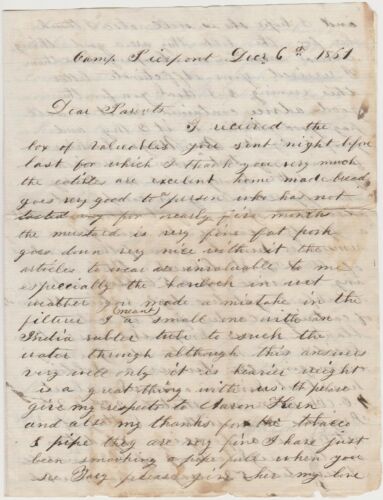 Camp Pierpont Decr 6th 1861
Dear Parents
I recieved the
box of valuables you sent night before
last for which I thank you very much
the eatibles are excelent home made bread
goes very good to person who has not
tasted any for nearly five months
the mustard is very fine fat pork
goes down very nice with it the
articles to wear are invaluable to me
especially the in wet
weather you made a mistake in the
filture I (meant) a small one with an
India rubber tube to suck the
water through although this answers
very well only it is heavier weight
is a great thing with us please
give my respects to Aaron Kern
and also my thanks for the tobacco
& pipe they are very fine I have just
been smoking a pipe full when you
see please give her my love